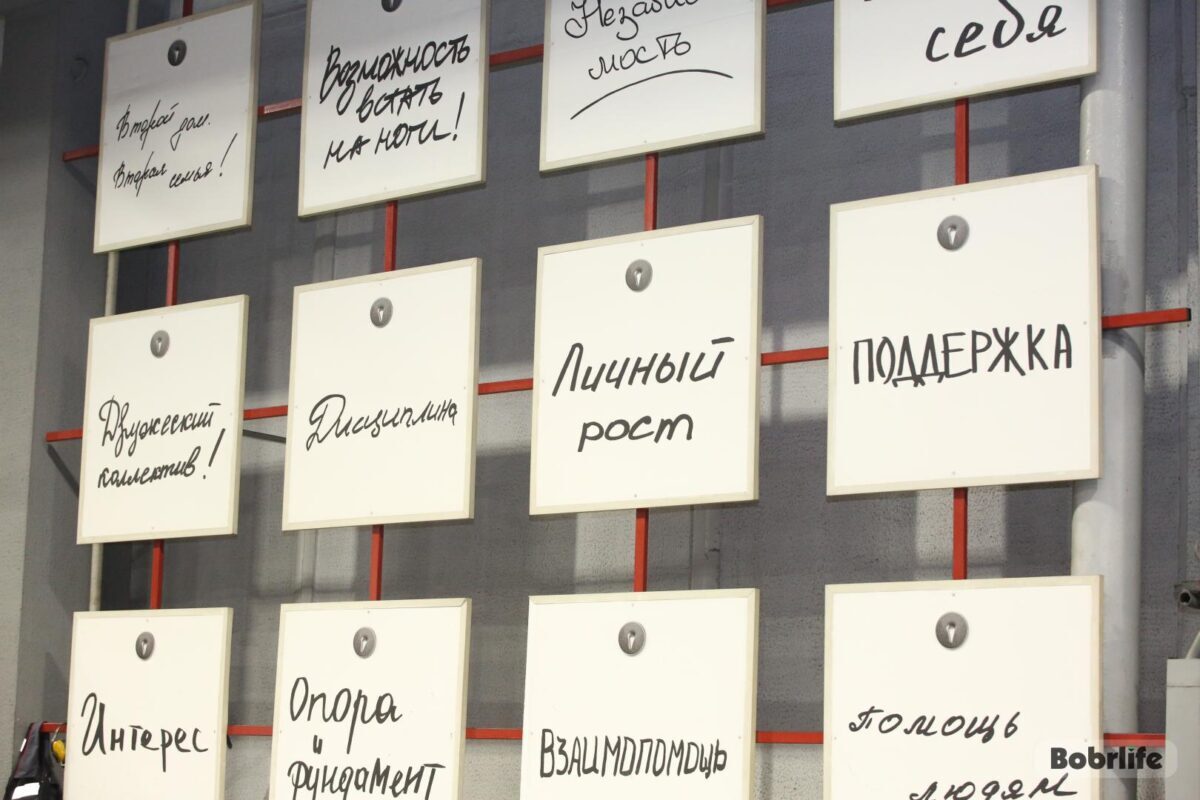 Второй дом.
Вторая семья!
Возможность
встать
на ноги!
Независи
мость
себя
Дружеский
коллектив!
Дисциплина
Личный
рост
ПОДДЕРЖКА
Интерес
Опора
и
фундамент
ВЗАИМОПОМОЩЬ
Помощь
людям
Bobrlife